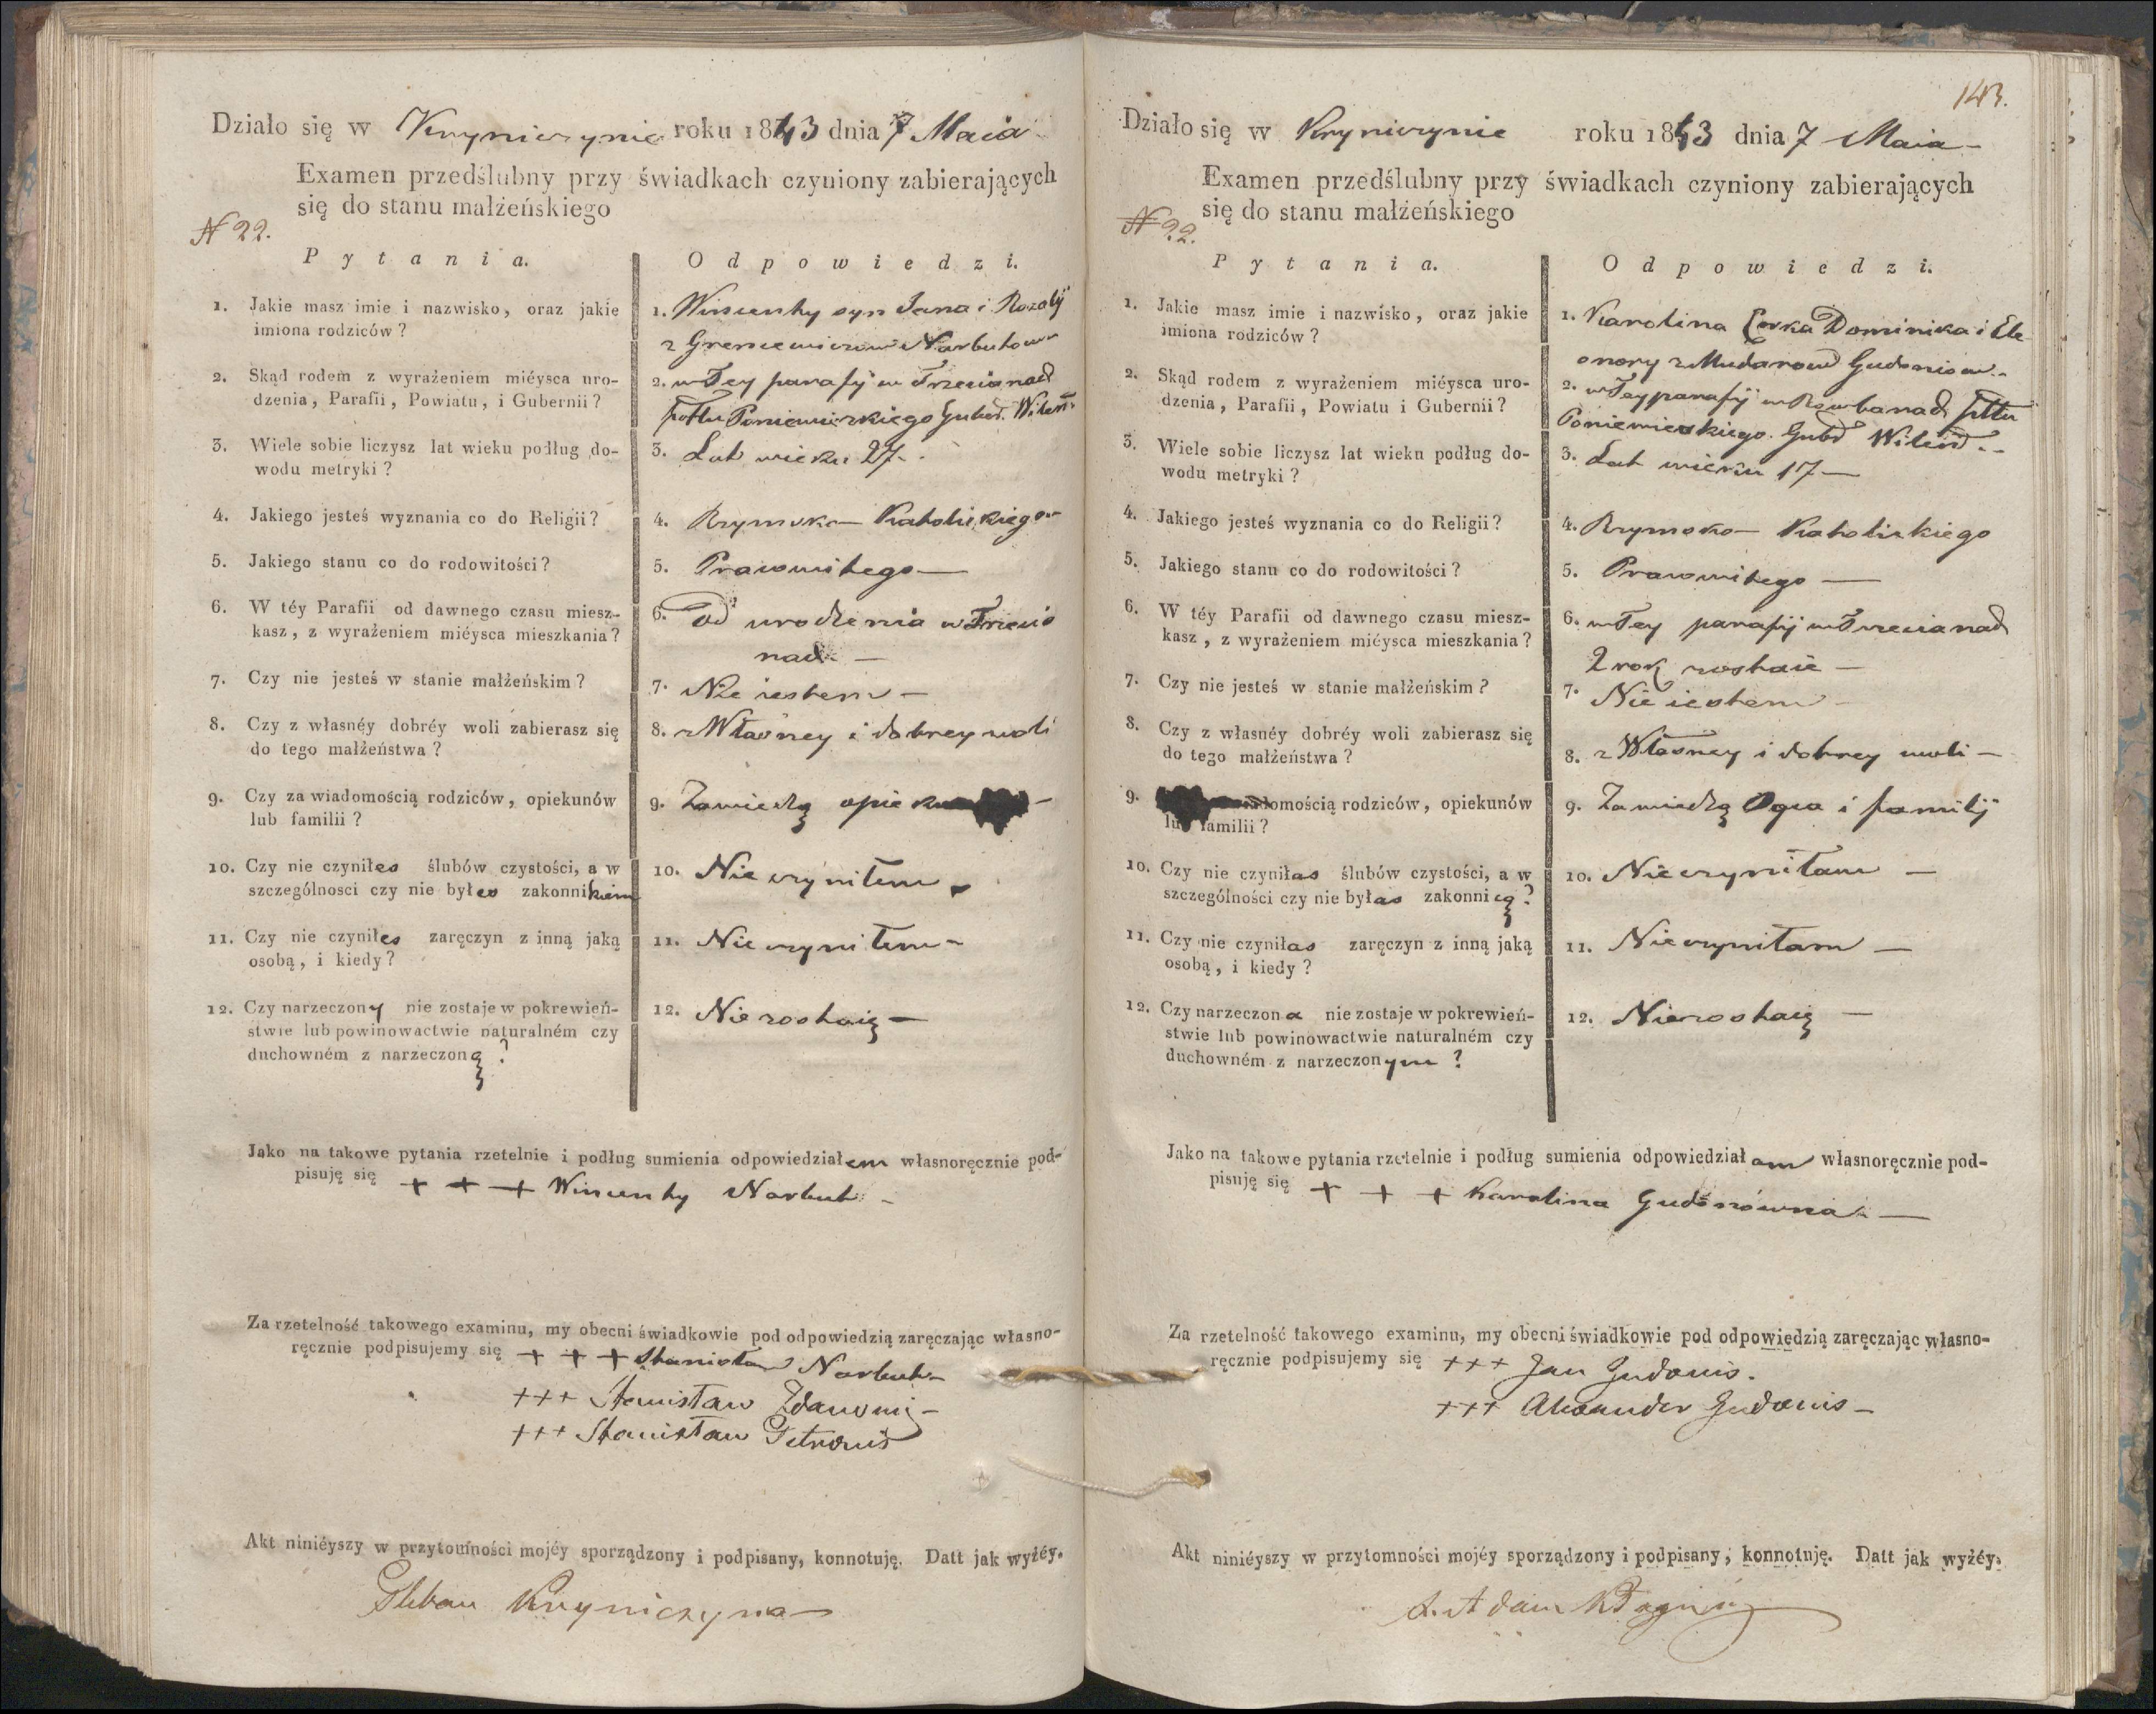 Działo się w Kryniczynie roku 1843 dnia 7 Maia
Examen przedślubny przy świadkach czyniony zabierających
się do stanu małżeńskiego
N 22.
Pytania.
Odpowiedzi.
1. Jakie masz imie i nazwisko, oraz jakie
imiona rodziców?
1. Wincenty syn Jana i Rozalij
z Narbutow
2. Skąd rodem z wyrażeniem miéysca uro-
dzenia, Parafii, Powiatu, i Gubernii?
2. w Tey parafij w Trzecianad
Pottu Poniewiezkiego Guber. Wilen.
3. Wiele sobie liczysz lat wieku podług do-
wodu metryki?
3. Lat wieku 27.
4. Jakiego jesteś wyznania co do Religii?
4. Rzymsko Katolickiego
5. Jakiego stanu co do rodowitości?
5. Prawowitego
6. W téy Parafii od dawnego czasu miesz-
kasz, z wyrażeniem miéysca mieszkania?
6. Od urodzenia w Trzecia
nad.
7. Czy nie jesteś w stanie małżeńskim?
7. Nie iestem
8. Czy z własnéy dobréy woli zabierasz się
do tego małżeństwa?
8. z Własney i dobrey woli
9. Czy za wiadomością rodziców, opiekunów
lub familii?
9. Zawiedzą
10. Czy nie czyniłes ślubów czystości, a w
szczególnosci czy nie byłes zakonnikiem
10. Nie czyniłem
11. Czy nie czyniłes zaręczyn z inną jaką
osobą, i kiedy?
11. Nie czyniłem
12. Czy narzeczony nie zostaje w pokrewień-
stwie lub powinowactwie naturalném czy
duchowném z narzeczoną?
12. Nie zostaię
Jako na takowe pytania rzetelnie i podług sumienia odpowiedziałem własnoręcznie pod-
pisuję się + + + Wincenty Narbut
Za rzetelność takowego examinu, my obecni świadkowie pod odpowiedzią zaręczając własno-
ręcznie podpisujemy się + + + Stanisław Narbut
+++ Stanisław Zdanowi
+++ Stanisław Petronis
Akt niniéyszy w przytomności mojéy sporządzony i podpisany, konnotuję. Datt jak wyżéy.
Pleban Kryniczyna
143.
Działo się w Kryniczynie roku 1843 dnia 7 Maia
Examen przedślubny przy świadkach czyniony zabierających
się do stanu małżeńskiego
N 22.
Pytania.
Odpowiedzi.
1. Jakie masz imie i nazwisko, oraz jakie
imiona rodziców?
1. Karolina Corka Dominika i Ele
onory z Mudarow Gudaniow
2. Skąd rodem z wyrażeniem miéysca uro-
dzenia, Parafii, Powiatu i Gubernii?
2. w Tey parafij w Pttu
Poniewiezkiego. Gub. Wilen.
3. Wiele sobie liczysz lat wieku podług do-
wodu metryki?
3. Lat wieku 17
4. Jakiego jesteś wyznania co do Religii?
4. Rzymsko Katolickiego
5. Jakiego stanu co do rodowitości?
5. Prawowitego
6. W téy Parafii od dawnego czasu miesz-
kasz, z wyrażeniem miéysca mieszkania?
6. w Tey parafij w Trzecianad
2 rok zostaie
7. Czy nie jesteś w stanie małżeńskim?
7. Nie iestem
8. Czy z własnéy dobréy woli zabierasz się
do tego małżeństwa?
8. z Własney i dobrey woli
9. rodziców, opiekunów
familii?
9. Zawiedzą Oyca i familij
10. Czy nie czyniłas ślubów czystości, a w
szczególności czy nie byłas zakonnicą?
10. Nie czyniłam
11. Czy nie czyniłas zaręczyn z inną jaką
osobą, i kiedy?
11. Nie czyniłam
12. Czy narzeczona nie zostaje w pokrewień-
stwie lub powinowactwie naturalném czy
duchowném z narzeczonym?
12. Nie zostaię
Jako na takowe pytania rzetelnie i podług sumienia odpowiedziałam własnoręcznie pod-
pisuję się + + + Karolina Gudanówna
Za rzetelność takowego examinu, my obecni świadkowie pod odpowiedzią zaręczając własno-
ręcznie podpisujemy się +++ Jan Gudanis.
+++ Alexander Gudanis
Akt niniéyszy w przytomności mojéy sporządzony i podpisany, konnotuję. Datt jak wyżéy.
X. Adam